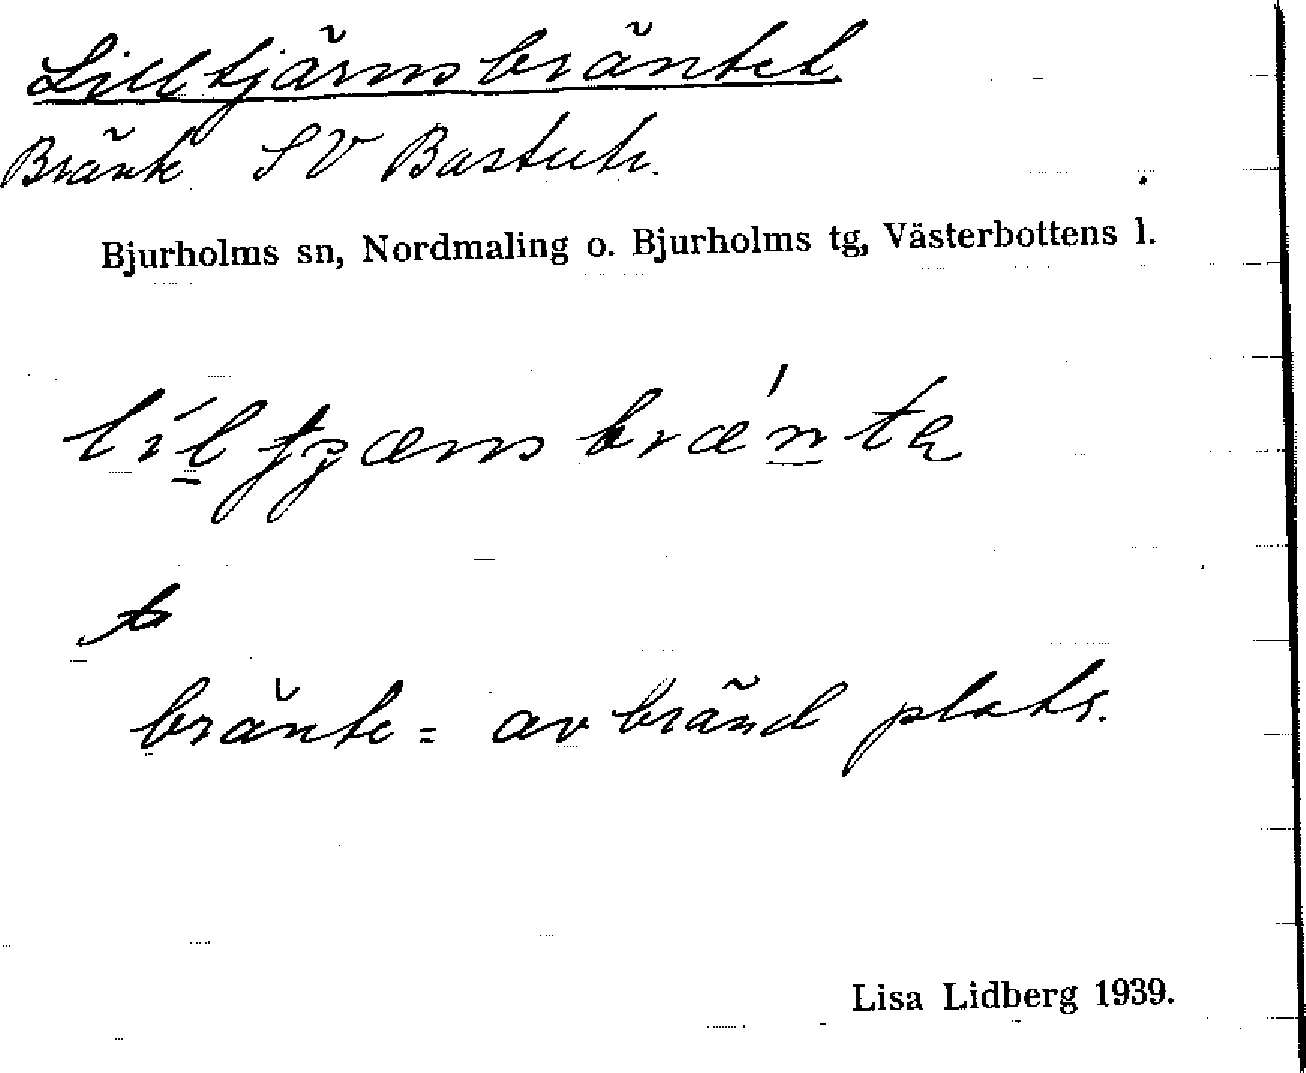 Lilltjärnsbräntet
Bränte SV Bastutr.
Bjurholms sn, Nordmaling o. Bjurholms tg, Västerbottens l.
bränte = avbränd plats.
Lisa Lidberg 1939.